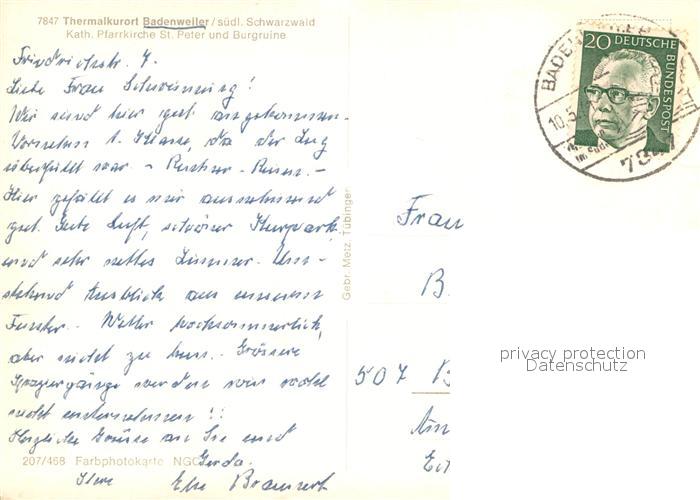 7847 Thermalkurort Badenweiler / südl. Schwarzwald
Kath. Pfarrkirche St. Peter und Burgruine
Friedrichstr. 7.
Liebe Frau
Wir sind hier gut angekommen.
Vornehm 1. Klasse, da der Zug
überfüllt war. -
Hier gefällt es mir ausnehmend
gut. Gute Luft, schöner Kurpark
und sehr nettes Zimmer.
Ausblick aus unserem
Fenster. Wetter hochsommerlich,
aber nicht zu heiss. Grössere
Spaziergänge werden wir wohl
nicht unternehmen!!
Herzliche Grüsse an Sie und
Gerda.
Ihre Else
207/468 Farbphotokarte
Gebr. Metz, Tübingen
20 DEUTSCHE
BUNDESPOST
10.5.
7847
Frau
B.
507
privacy protection
Datenschutz